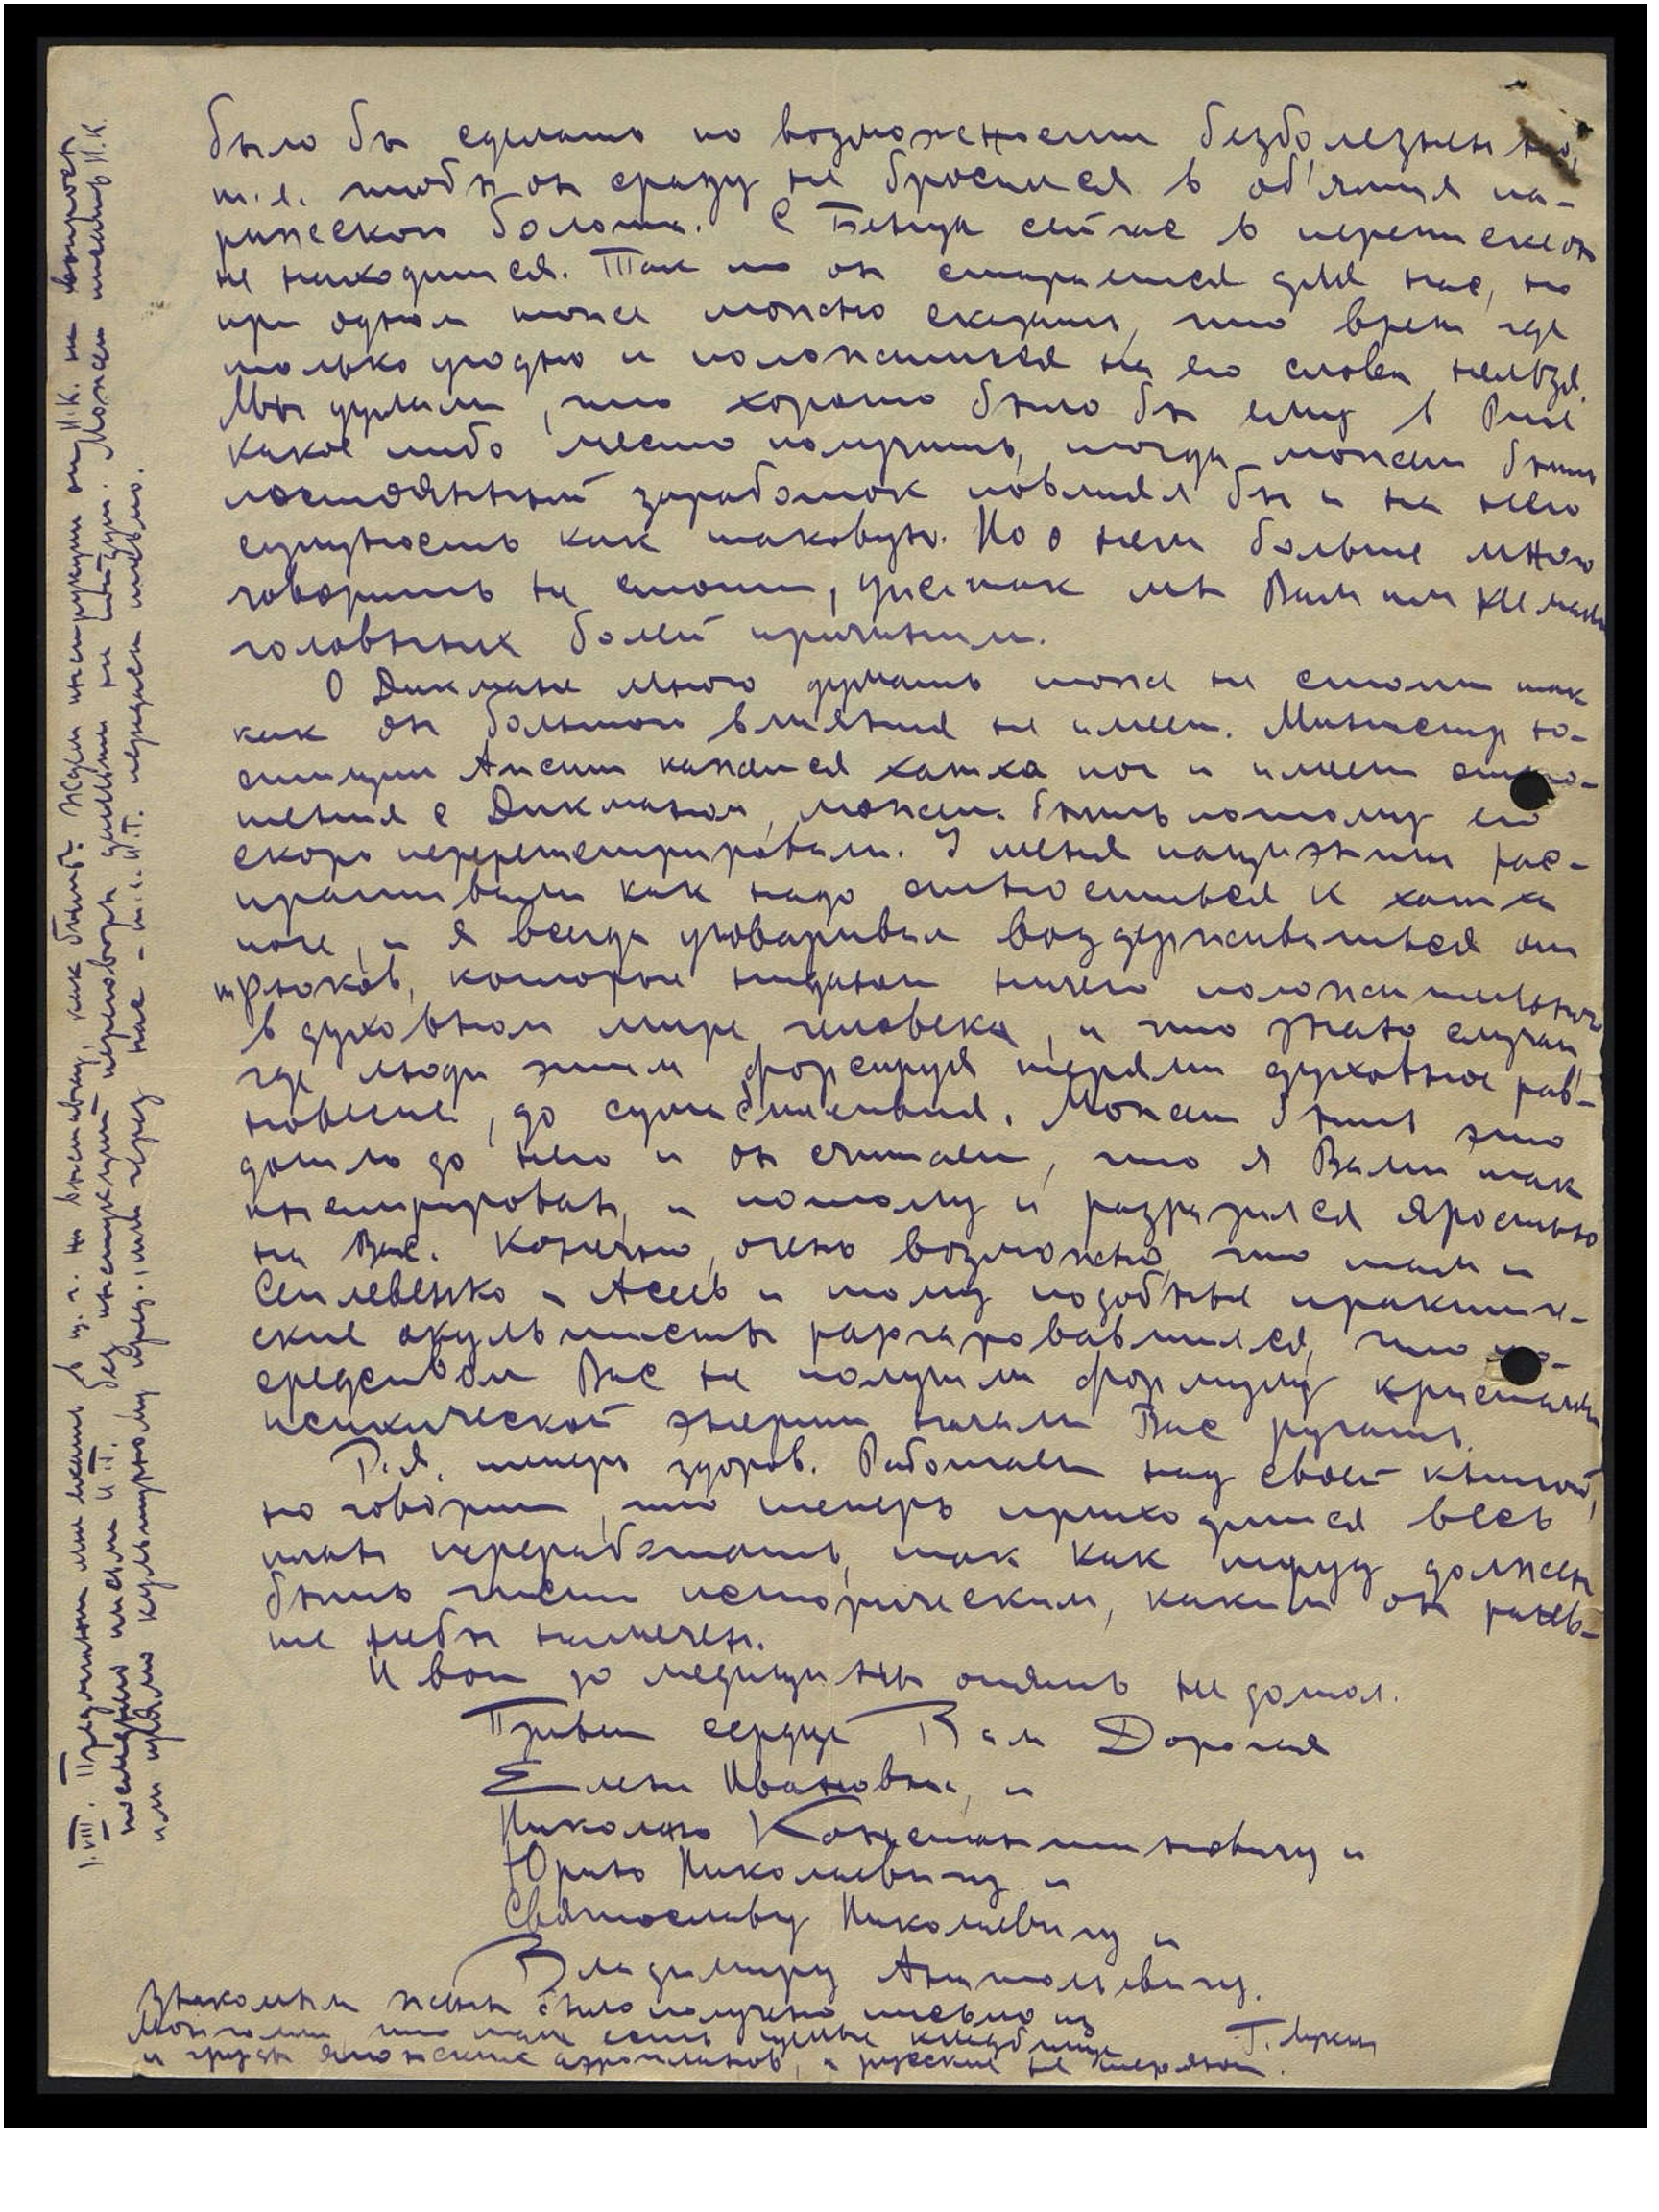 было бы сделано по возможности безболезненно,
т.е. чтобы он сразу не бросился в об'ятия па-
рижского болота. С Бенуа сейчас в переписке он
не находится. Так что он старается для нас, но
при одном тоже можно сказать, что врет где
только угодно и положиться на его слова нельзя.
Мы думали, что хорошо было бы ему в Риге
какое либо место получить, тогда может быть
постоянный заработок повлиял бы и на него
сущность как таковую. Но о нем больше много
говорить не стоит, уже так мы Вам им не мало
головных болей причинили.
О Дикмане много думать тоже не стоит так
как он большого влияния не имеет. Министр ю-
стиции Апсит кажется хатха йог и имеет отно-
шения с Дикманом, может быть потому его
скоро перерегистрировали. У меня пациенты рас-
прашивали как надо относиться к хатха
йоге, и я всегда уговаривал воздерживаться от
трюков, которые не дают ничего положительного
в духовном мире человека, и что знаю случаи
где люди этим форсируя теряли духовное рав-
новесие, до сумасшествия. Может быть это
дошло до него и он считает, что я Вами так
инспирирован, и потому и разразился яростью
на Вас. Конечно, очень возможно, что там и
Селивенко и Асеев и тому подобные практиче-
ские оккультисты разочаровавшиеся, что по-
средством Вас не получили формулу кристалла
психической энергии начали Вас ругать.
Р.Я. теперь здоров. Работает над своей книгой,
но говорит, что теперь приходится весь
план переработать, так как труд должен
быть чисто историческим, каким он рань-
ше не был намечен.
И вот до медицины опять не дошел.
Привет сердца Вам Дорогая
Елена Ивановна, и
Николаю Константиновичу и
Юрию Николаевичу и
Святославу Николаевичу и
Владимиру Анатольевичу.
Г. Лукин
Знакомыми жены было получено письмо из
Монголии, что там есть целые кладбища
и груды японских аэропланов, а русские не теряют.
1.VIII. Предприятии или ехать в ц. г. на выставку, как быть? Ждем инструкции от Н.К. на вопрос
последнего письма И.Т. без инструкций переговоры дальше не пойдут. Может телегр. Н.К.
или прямо культурному пред., или через нас - т.е. И.Т. передаст письмо.